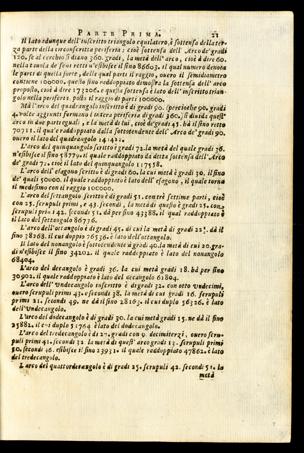 PARTE PRIMA. 21
Il lato adunque dell'inscritto triangolo equilatero, è sottensa della ter-
za parte della circonscritta periferia: cioè sottensa dell'Arco de' gradi
120. se al cerchio si diano 360. gradi, la metà dell'arco, cioè à dire 60.
nella tavola de' seni retti n'essibisce il sino 86603. il qual numero denota
le parti di quella sorte, delle quali parti il raggio, overo il semidiametro
contiene 100000. questo sino raddoppiato dimostra la sottensa dell'arco
proposto, cioè à dire 173206. e questa sottensa è lato dell'inscritto trian-
golo nella periferia posto il raggio di parti 100000.
Mà l'arco del quadrangolo inscritto è di gradi 90. (percioche 90. gradi
4. volte aggiunti formano l'intera periferia di gradi 360. si divida quest'
arco in due parti eguali, e la metà di lui, cioè de' gradi 45. hà il sino retto
70711. il qua'e raddoppiato dalla sottotendente dell'Arco de' gradi 90.
overo il lato del quadrangolo 141422.
L'arco del quinquangolo scritto è gradi 72. la metà del quale gradi 36.
n'essibisce il sino 58779. il quale raddoppiato da detta sottensa dell'Arco
de' gradi 72. overo il lato del quinquangolo 117558.
L'arco dell'esagono scritto è di gradi 60. la cui metà è gradi 30. il sino
de' quali 50000. il quale raddoppiato è lato dell'esagono, il quale torna
il medesimo con il raggio 100000.
L'arco del settangolo scritto è di gradi 51. con tre settime parti, cioè
con 25. scrupuli primi, e 43. secondi, la metà di questo è gradi 25. con
scrupuli primi 42. secondi 51. dà per sino 43388. il qual raddoppiato è
il lato del settangolo 86776.
L'arco dell'ottangolo è di gradi 45. di cui la metà è di gradi 22½. dà il
sino 38268. il cui doppio 76536. è lato dell'ottangolo.
Il lato del nonangolo è sottotendente à gradi 40. la metà di cui 20. gra-
di n'essibisce il sino 34202. il quale raddoppiato è lato del nonangolo
68404.
L'arco del decangolo è gradi 36. la cui metà gradi 18. hà per sino
30902. il quale raddoppiato è lato del decangolo 61804.
L'arco dell'undecangolo inscritto è di gradi 32. con otto undecimi,
overo scrupuli primi 43. secondi 38. la metà di cui gradi 16. scrupuli
primi 21. secondi 49. ne dà il sino 28163. il cui duplo 56326. è lato
dell'Undecangolo.
L'arco del dodecangolo è di gradi 30. la cui metà gradi 15. ne dà il sino
25882. il cui duplo 51764 è lato del dodecangolo.
L'arco del tredecangolo è di 27. gradi con 9. decimiterzi, overo scru-
puli primi 41. secondi 32. la metà di quest'arco gradi 13. scrupuli primi
50. secondi 46. essibisce il sino 23931. il quale raddoppiato 47862. è lato
del tredecangolo.
L'arco del quattordecangolo è di gradi 25. scrupuli 42. secondi 51. la
metà